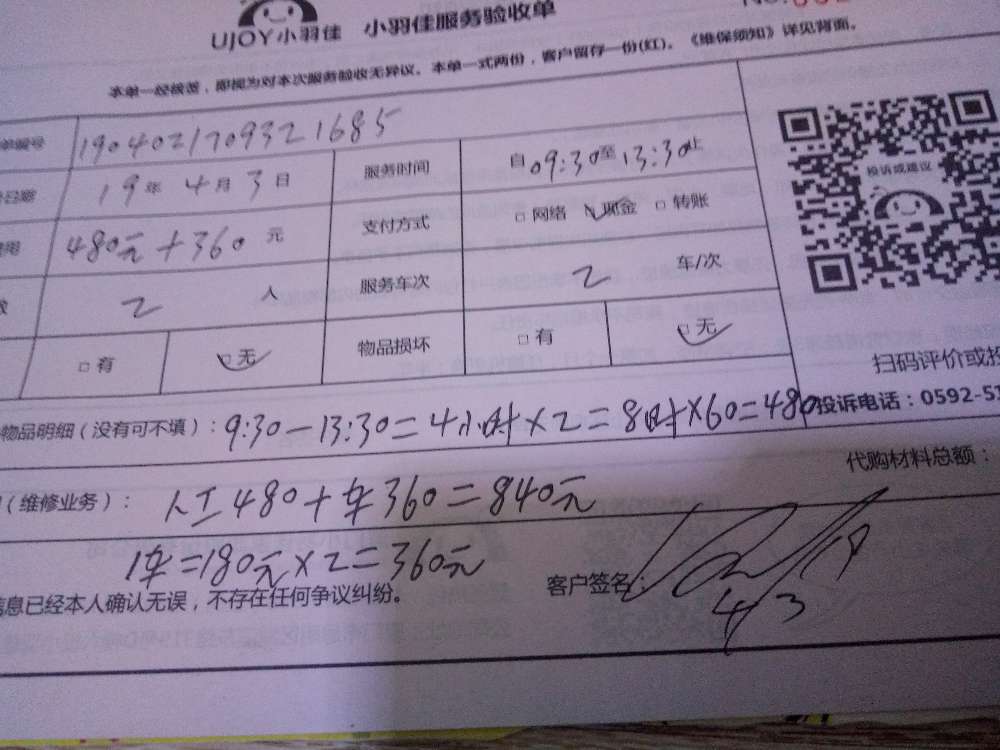 UJOY小羽佳 小羽佳服务验收单
本单一经核签，即视为对本次服务验收无异议。本单一式两份，客户留存一份(红)。《维保须知》详见背面。
单编号 190402170932 1685
日期 19年 4月 3日 服务时间 自09:30至13:30止
用 480元+360 元 支付方式 □网络 ☑现金 □转账
数 2 人 服务车次 2 车/次
□有 ☑无 物品损坏 □有 ☑无
投诉或建议
扫码评价或投
物品明细（没有可不填）：9:30-13:30=4小时×2=8时×60=480
投诉电话：0592-5
代购材料总额：
（维修业务）： 人工480+车360=840元
1车=180元×2=360元
客户签名：
信息已经本人确认无误，不存在任何争议纠纷。
4/3